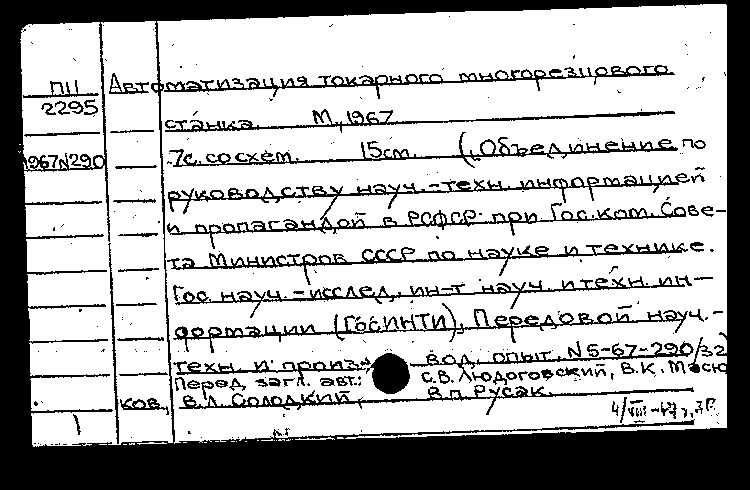 П11 Автоматизация токарного многорезцового
2295
станка. М., 1967
1967N290 7с. со схем. 15см. (Объединение по
руководству науч.-техн. информацией
и пропагандой в РСФСР при Гос. ком. Сове-
та Министров СССР по науке и технике.
Гос. науч.-исслед. ин-т науч. и техн. ин-
формации (ГОСИНТИ), Передовой науч.-
техн. и произвол. опыт. N5-67-290/32)
Перед загл. авт.: С.В. Людоговский, В.К. Масю
ков, В.Л. Солодкий, В.П. Русак.